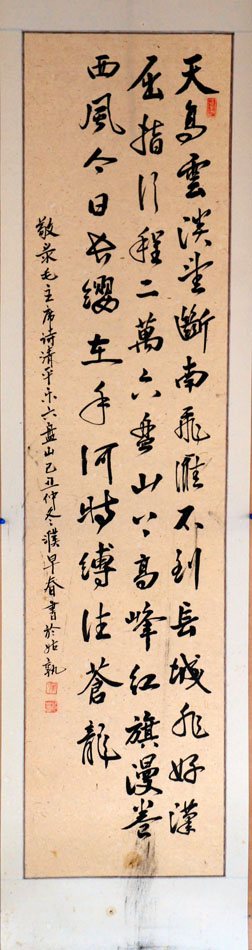 天高雲淡望斷南飛雁不到長城非好漢
屈指行程二萬六盤山上高峰紅旗漫卷
西風今日長纓在手何時縛住蒼龍
敬录毛主席诗清平乐六盘山己丑仲冬濮早春書於姑孰